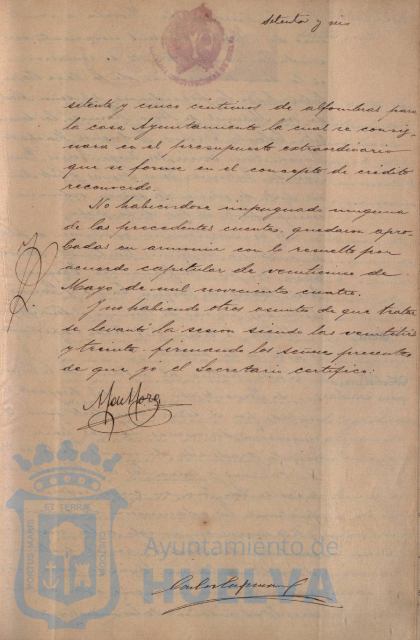 setenta y seis
setenta y cinco centimos de alfombras para
la casa Ayuntamiento la cual se consig-
nará en el presupuesto extraordinario
que se forme en el concepto de crédito
reconocido.
No habiendose impugnado ninguna
de las precedentes cuentas, quedaron apro-
badas en armonia con lo resuelto por
acuerdo capitular de veintinueve de
Mayo, de mil novecientos cuatro.
Y no habiendo otros asuntos de que tratar
se levantó la sesion siendo las veintitres
y treinta firmando los señores presentes
de que yó el Secretario certifico:
PORTUS MARIS
ET TERRAE
CUSTODIA
Ayuntamiento de
HUELVA